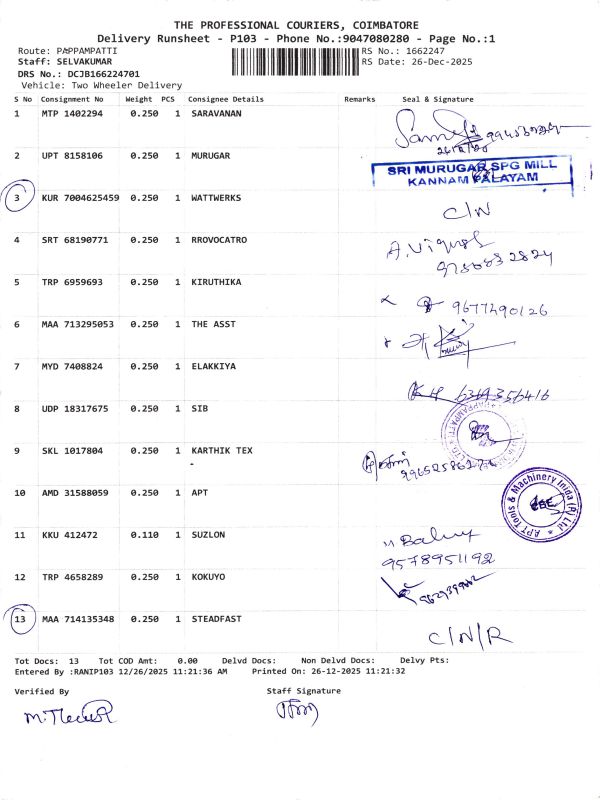 THE PROFESSIONAL COURIERS, COIMBATORE
Delivery Runsheet - P103 - Phone No.:9047080280 - Page No.:1
Route: PAPPAMPATTI
RS No.: 1662247
Staff: SELVAKUMAR
RS Date: 26-Dec-2025
DRS No.: DCJB166224701
Vehicle: Two Wheeler Delivery
S No Consignment No Weight PCS Consignee Details Remarks Seal & Signature
1 MTP 1402294 0.250 1 SARAVANAN
2 UPT 8158106 0.250 1 MURUGAR
SRI MURUGAR SPG MILL
KANNAM PALAYAM
3 KUR 7004625459 0.250 1 WATTWERKS C/N
4 SRT 68190771 0.250 1 RROVOCATRO
5 TRP 6959693 0.250 1 KIRUTHIKA
9677490126
6 MAA 713295053 0.250 1 THE ASST
7 MYD 7408824 0.250 1 ELAKKIYA
6369356416
8 UDP 18317675 0.250 1 SIB
9 SKL 1017804 0.250 1 KARTHIK TEX
-
10 AMD 31588059 0.250 1 APT
APT Tools & Machinery Inida (P) Ltd
11 KKU 412472 0.110 1 SUZLON
9578951192
12 TRP 4658289 0.250 1 KOKUYO
13 MAA 714135348 0.250 1 STEADFAST C/N/R
Tot Docs: 13 Tot COD Amt: 0.00 Delvd Docs: Non Delvd Docs: Delvy Pts:
Entered By :RANIP103 12/26/2025 11:21:36 AM Printed On: 26-12-2025 11:21:32
Verified By Staff Signature